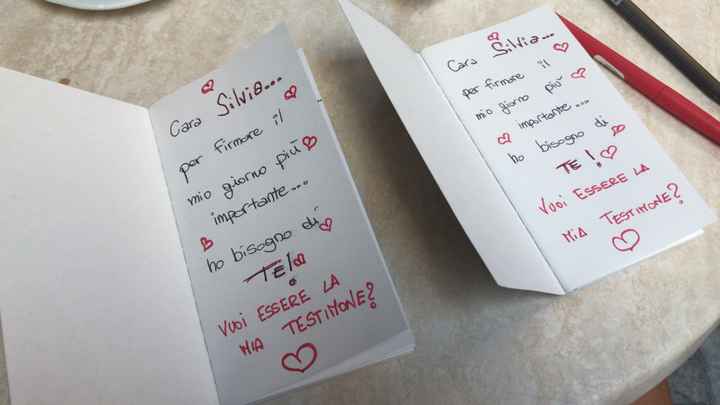 Cara Silvia...
per firmare il
mio giorno più
importante...
ho bisogno di
TE!
VUOI ESSERE LA
MIA TESTIMONE?
Cara Silvia...
per firmare il
mio giorno più
importante...
ho bisogno di
TE!
VUOI ESSERE LA
MIA TESTIMONE?